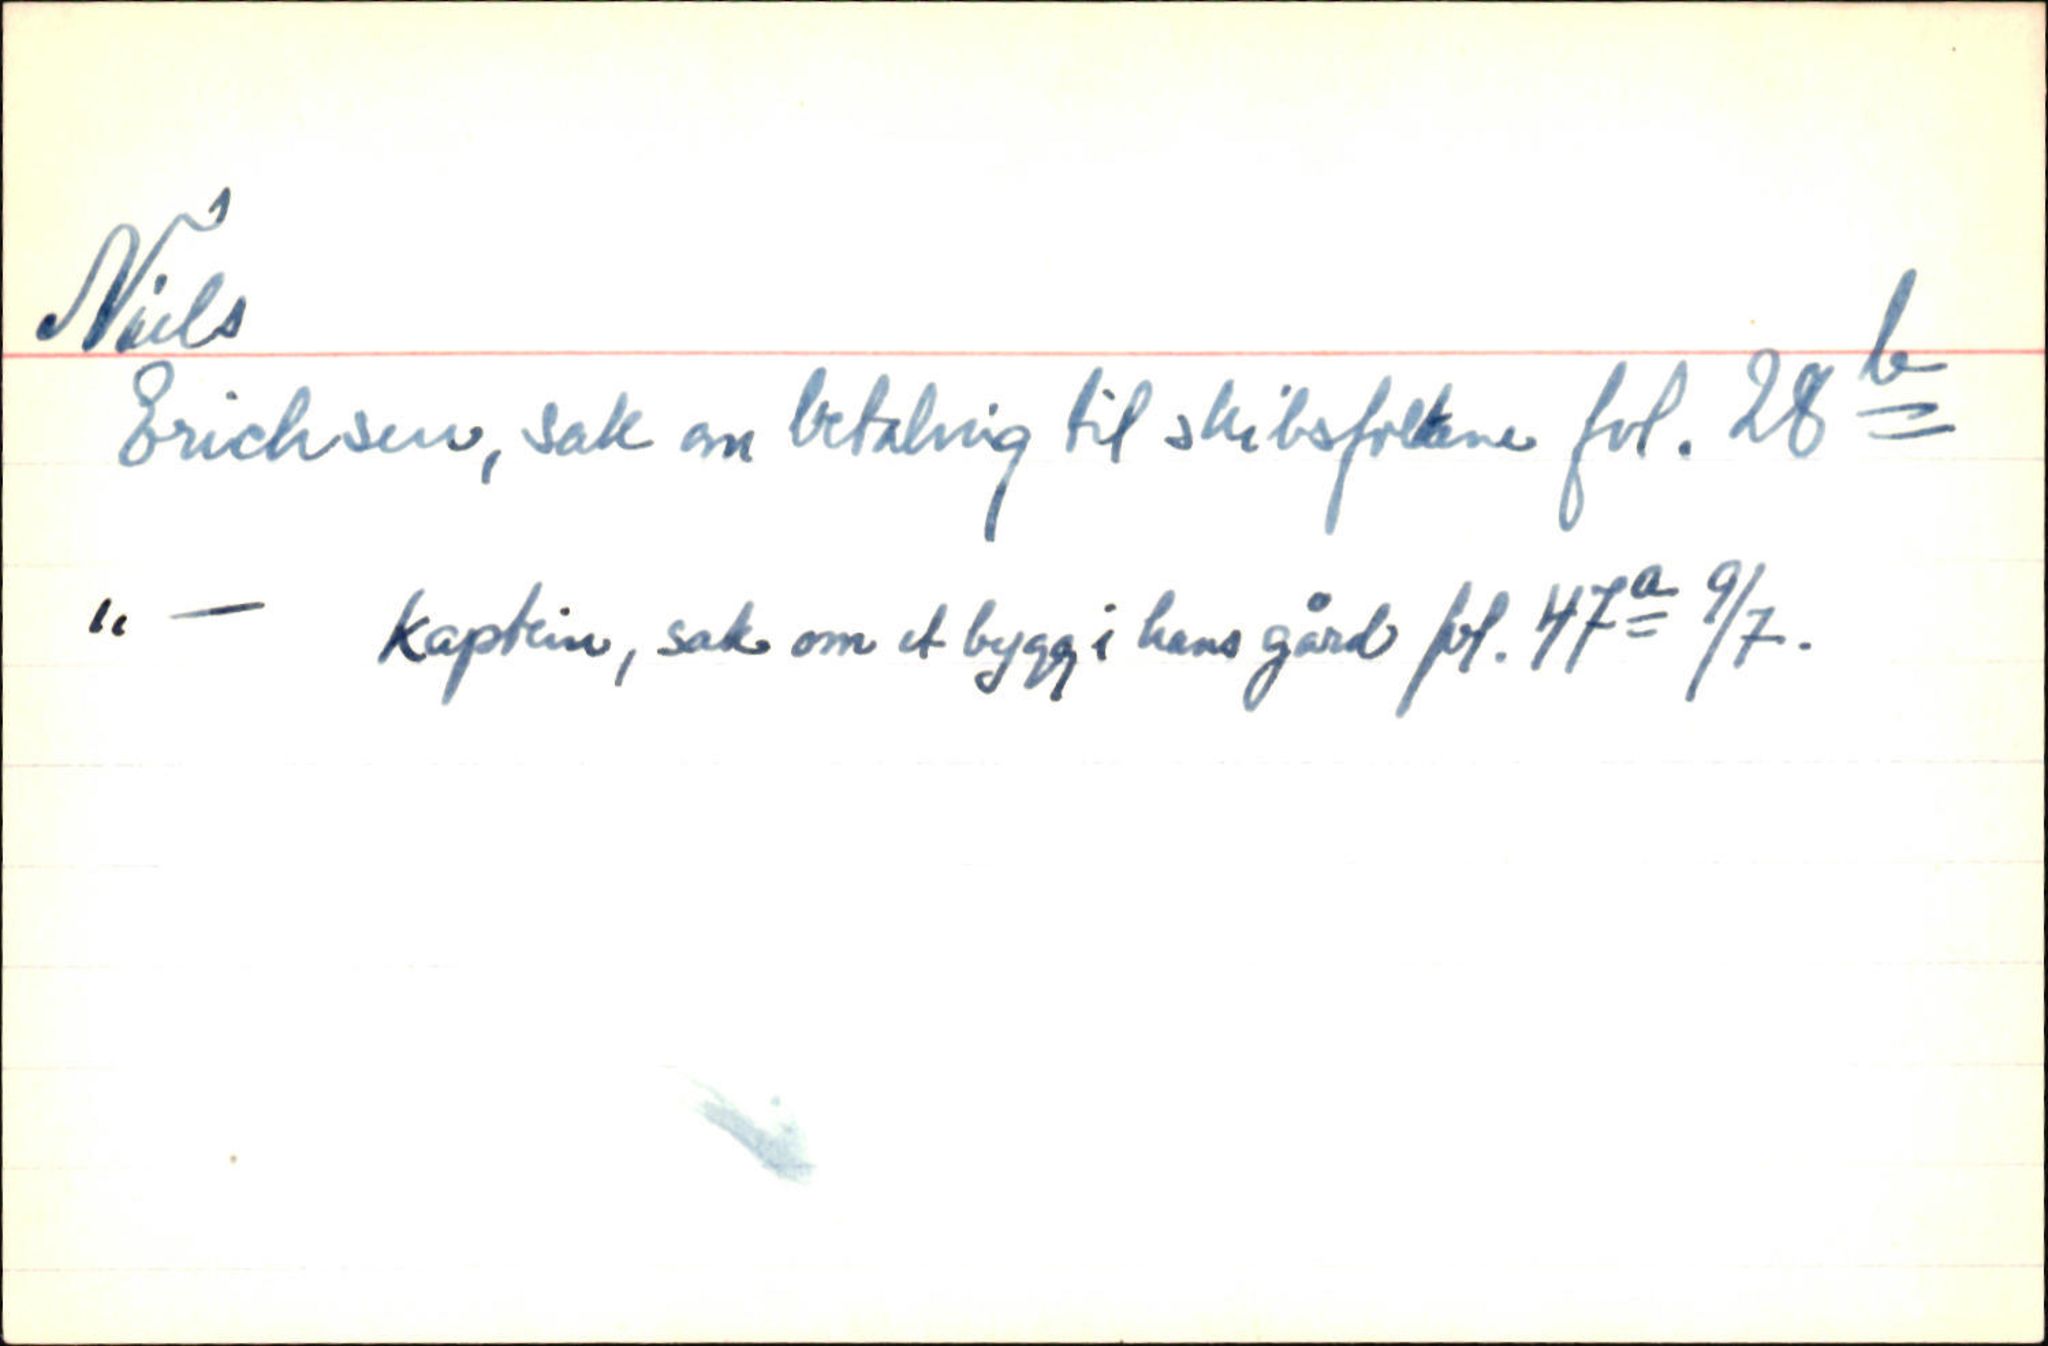 Niels
Erichsen, sak om betalnig til skibsfolkene fol. 28 b
" — kaptein, sak om et bygg i hans gård fol. 47 a 9/7.